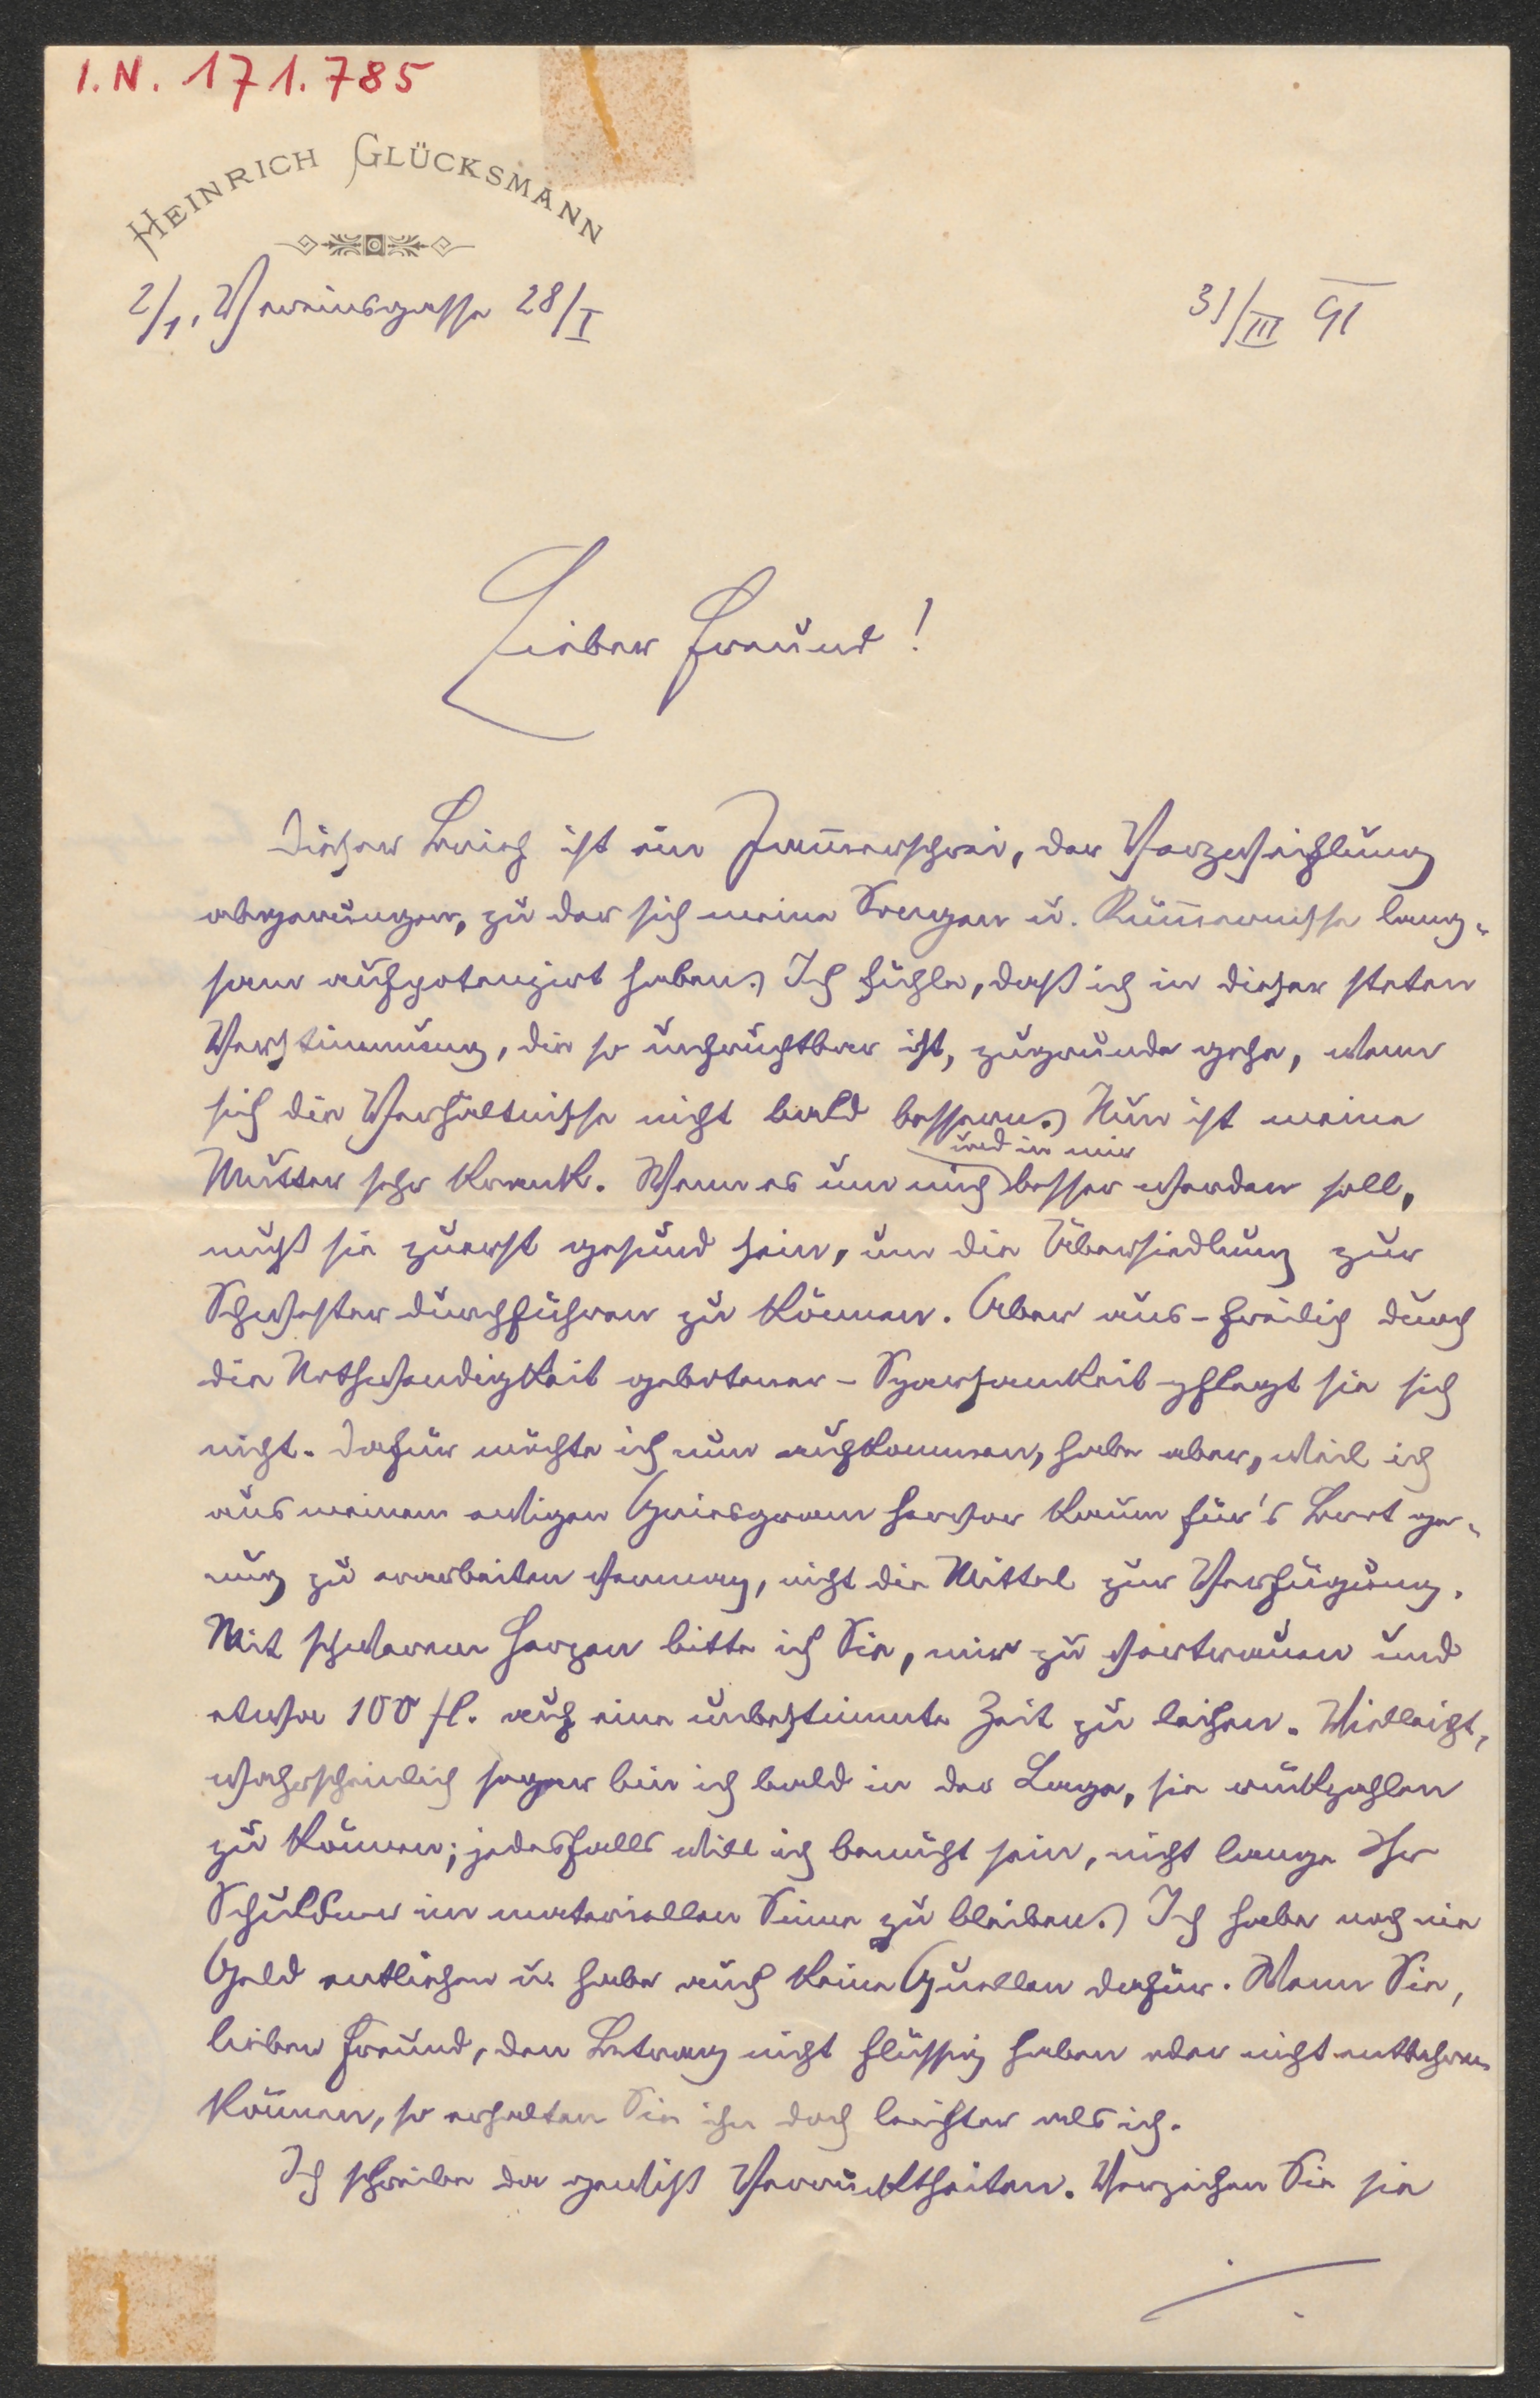 I.N. 171.785
HEINRICH GLÜCKSMANN
2/1, Vereinsgasse 28/I
31/III 91
Lieber Freund!
Dieser Brief ist ein Jam̅erschrei, der Verzweiflung
abgerungen, zu der sich meine Sorgen u. Küm̅ernisse lang-
sam aufpotenzirt haben. Ich fühle, daß ich in dieser steten
Verstimmung, die so unfruchtbar ist, zugrunde gehe, wenn
sich die Verhältnisse nicht bald bessern. Nun ist meine
und in mir
Mutter sehr krank. Wenn es um mich besser werden soll,
muß sie zuerst gesund sein, um die Übersiedlung zur
Schwester durchführen zu können. Aber aus – freilich durch
die Nothwendigkeit gebotener – Sparsamkeit pflegt sie sich
nicht. Dafür möchte ich nun aufkommen, habe aber, weil ich
aus meinem ewigen Griesgram hervor kaum für's Brot ge-
nug zu erarbeiten vermag, nicht die Mittel zur Verfügung.
Mit schwerem Herzen bitte ich Sie, mir zu vertrauen und
etwa 100 fl. auf eine unbestimmte Zeit zu leihen. Vielleicht,
wahrscheinlich sogar bin ich bald in der Lage, sie rückzahlen
zu können; jedesfalls will ich bemüht sein, nicht lange Ihr
Schuldner im materiellen Sinne zu bleiben. Ich habe noch nie
Geld entliehen u. habe auch keine Quellen dafür. Wenn Sie,
lieber Freund, den Betrag nicht flüssig haben oder nicht entbehren
können, so erhalten Sie ihn doch leichter als ich.
Ich schreibe da gewiß Verrücktheiten. Verzeihen Sie sie